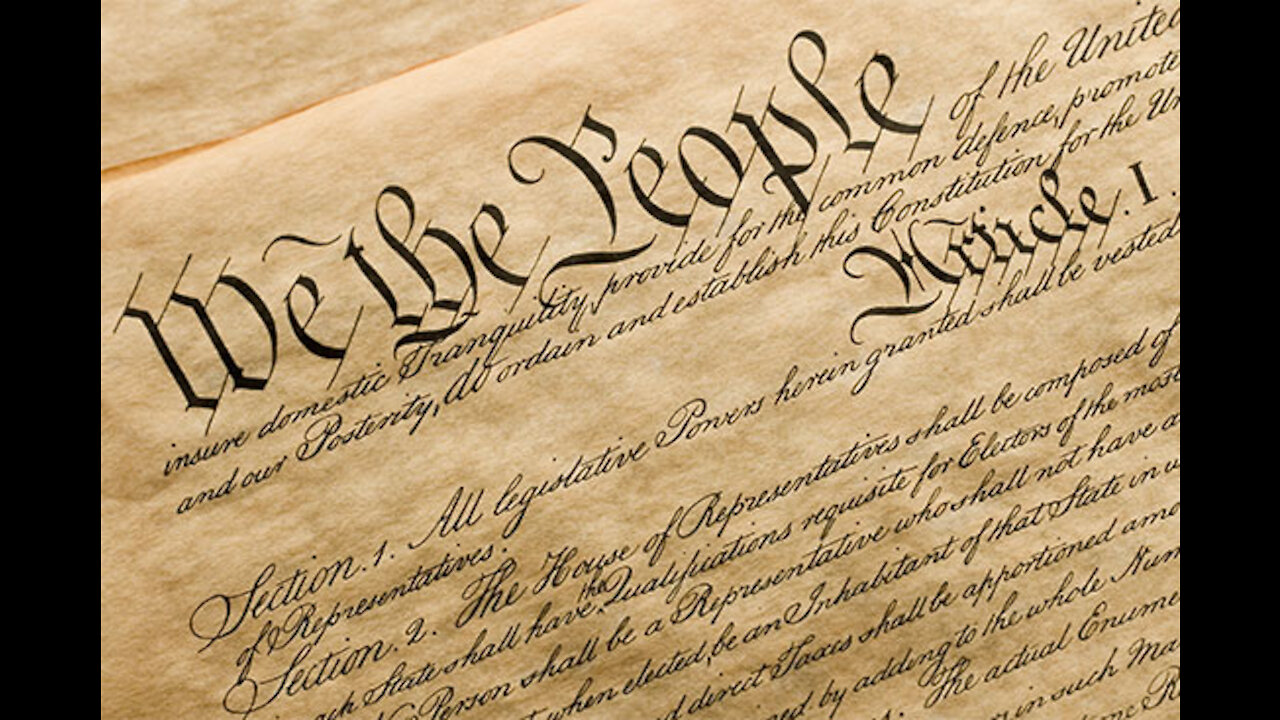 We the People of the United
insure domestic Tranquility, provide for the common defence, promote
and our Posterity, do ordain and establish this Constitution for the Un
Article. I.
Section. 1. All legislative Powers herein granted shall be vested
of Representatives.
Section. 2. The House of Representatives shall be composed of
ach State shall have the Qualifications requisite for Electors of the most
No Person shall be a Representative who shall not have a
when elected, be an Inhabitant of that State in w
d direct Taxes shall be apportioned amo
ned by adding to the whole Num
s. The actual Enume
rs in such Ma